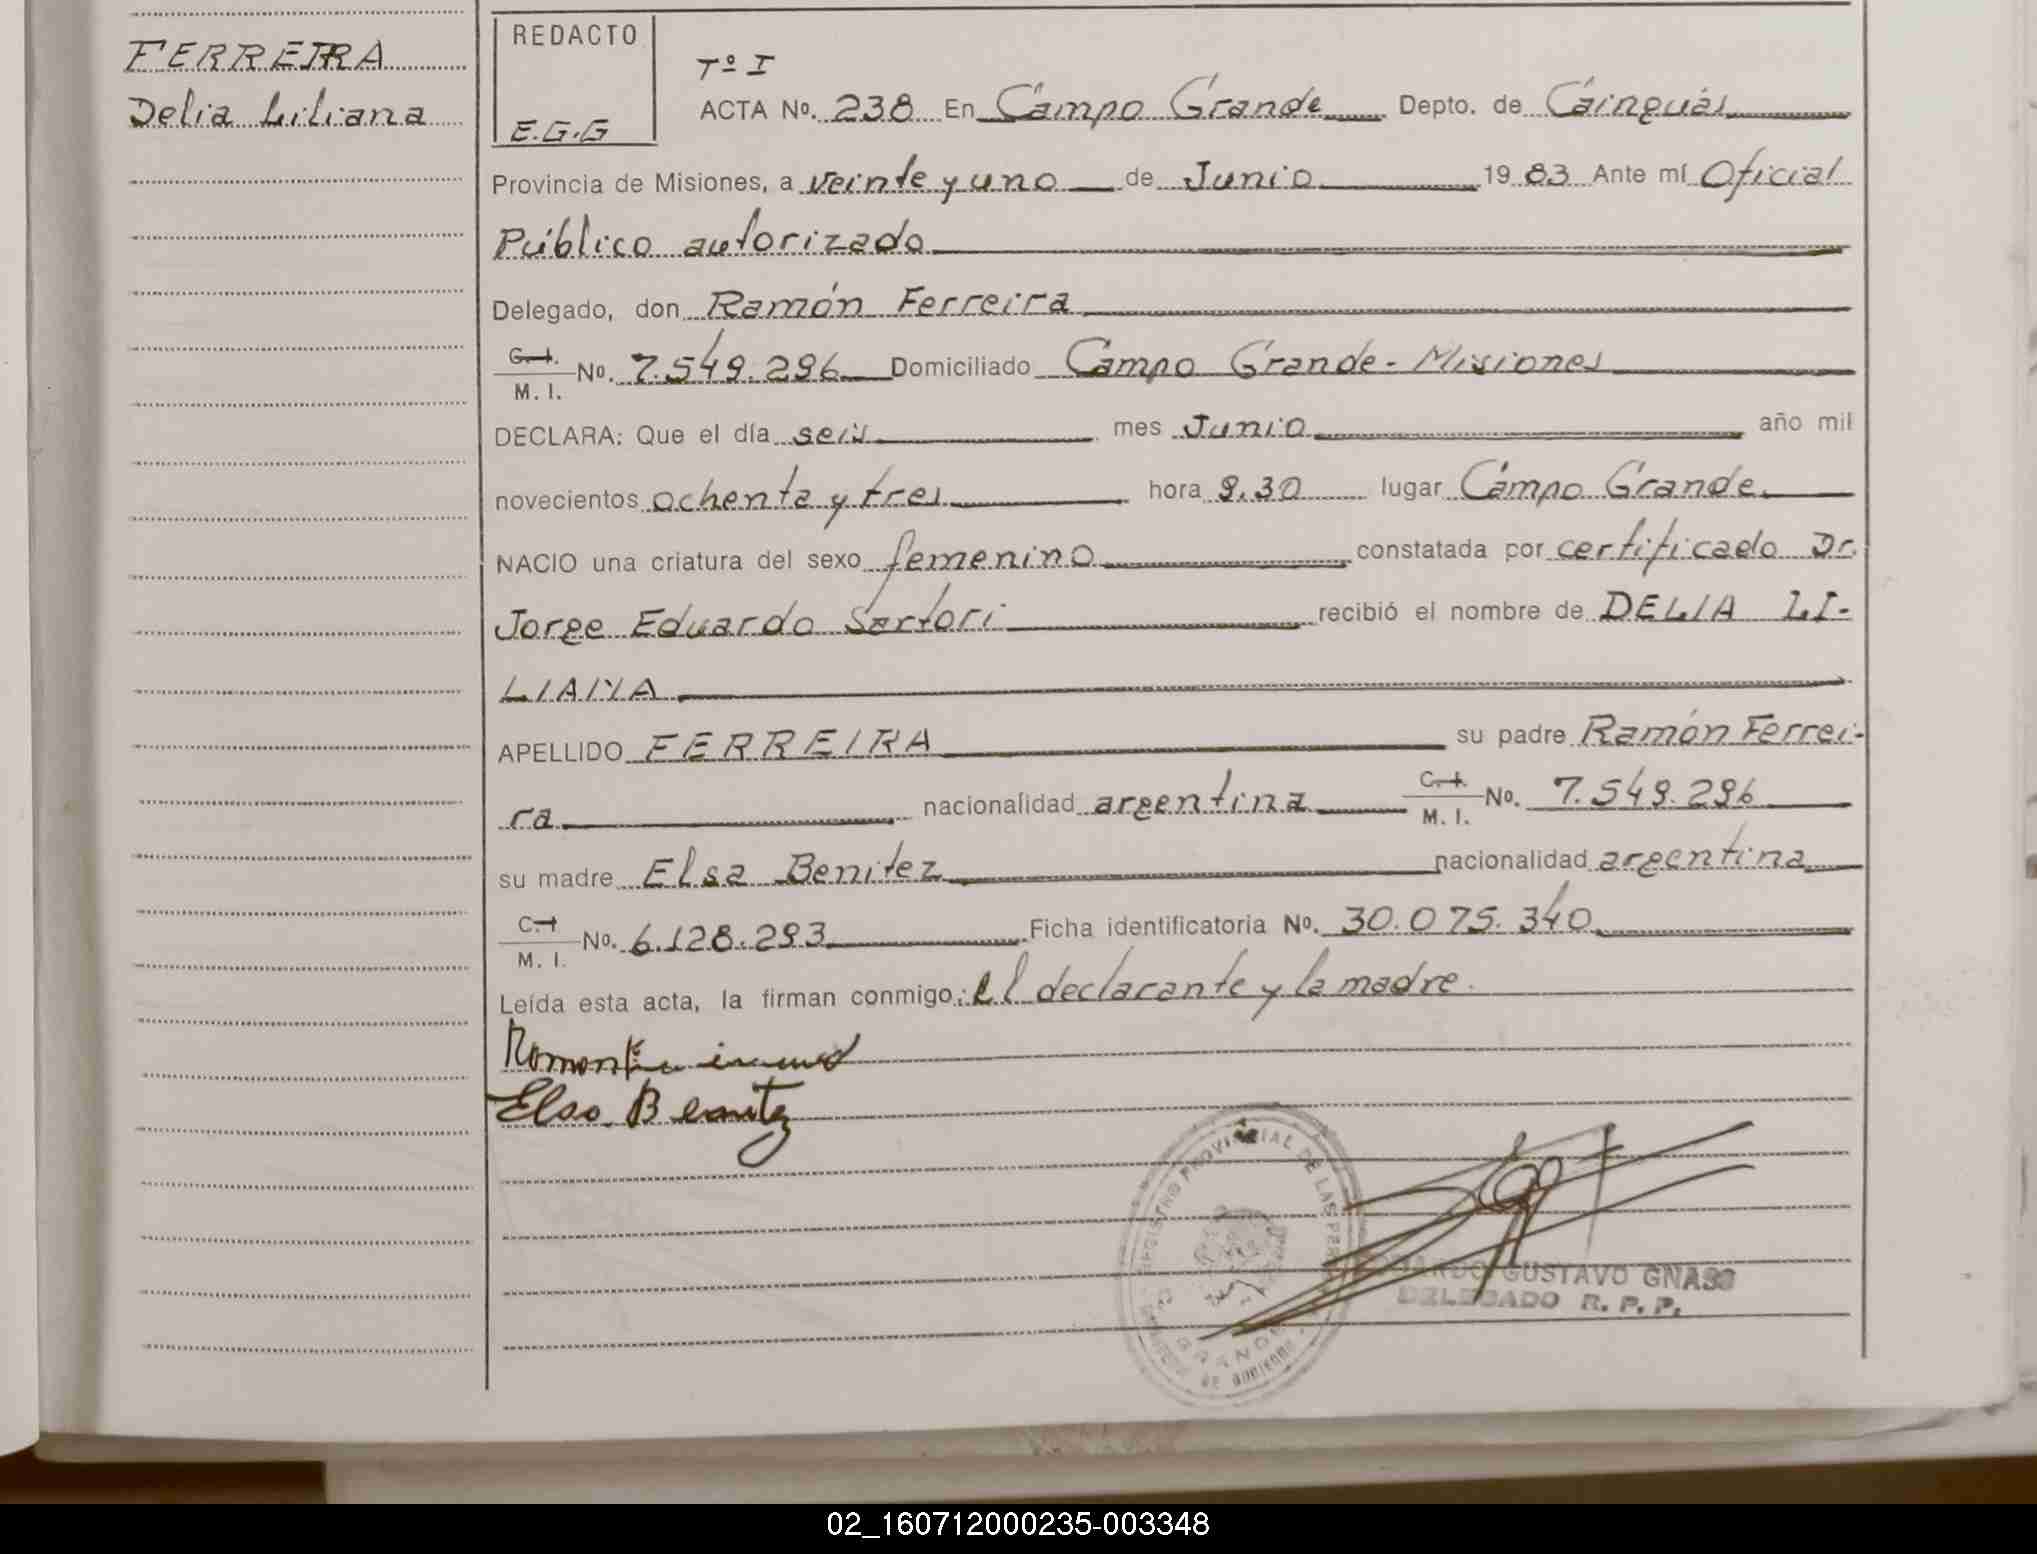 FERREIRA
Delia Liliana
REDACTO
E.G.G
Tº I
ACTA Nº. 238 En Campo Grande Depto. de Cainguás
Provincia de Misiones, a veinte y uno de Junio 1983 Ante mí Oficial
Público autorizado
Delegado, don Ramón Ferreira
C. I.
M. I. Nº. 7.549.296 Domiciliado Campo Grande - Misiones
DECLARA: Que el día seis mes Junio año mil
novecientos ochenta y tres hora 9.30 lugar Campo Grande
NACIO una criatura del sexo femenino constatada por certificado Dr.
Jorge Eduardo Sartori recibió el nombre de DELIA LI-
LIANA
APELLIDO FERREIRA su padre Ramón Ferrei-
ra nacionalidad argentina C. I. M. I. Nº. 7.549.296
su madre Elsa Benitez nacionalidad argentina
C. I.
M. I. Nº. 6.128.293 Ficha identificatoria Nº. 30.075.340
Leída esta acta, la firman conmigo: el declarante y la madre.
Elsa Benitez
REGISTRO PROVINCIAL DE LAS
GRANDE
DE GOBIERNO
GUSTAVO GNASS
DELEGADO R. P. P.
02_160712000235-003348